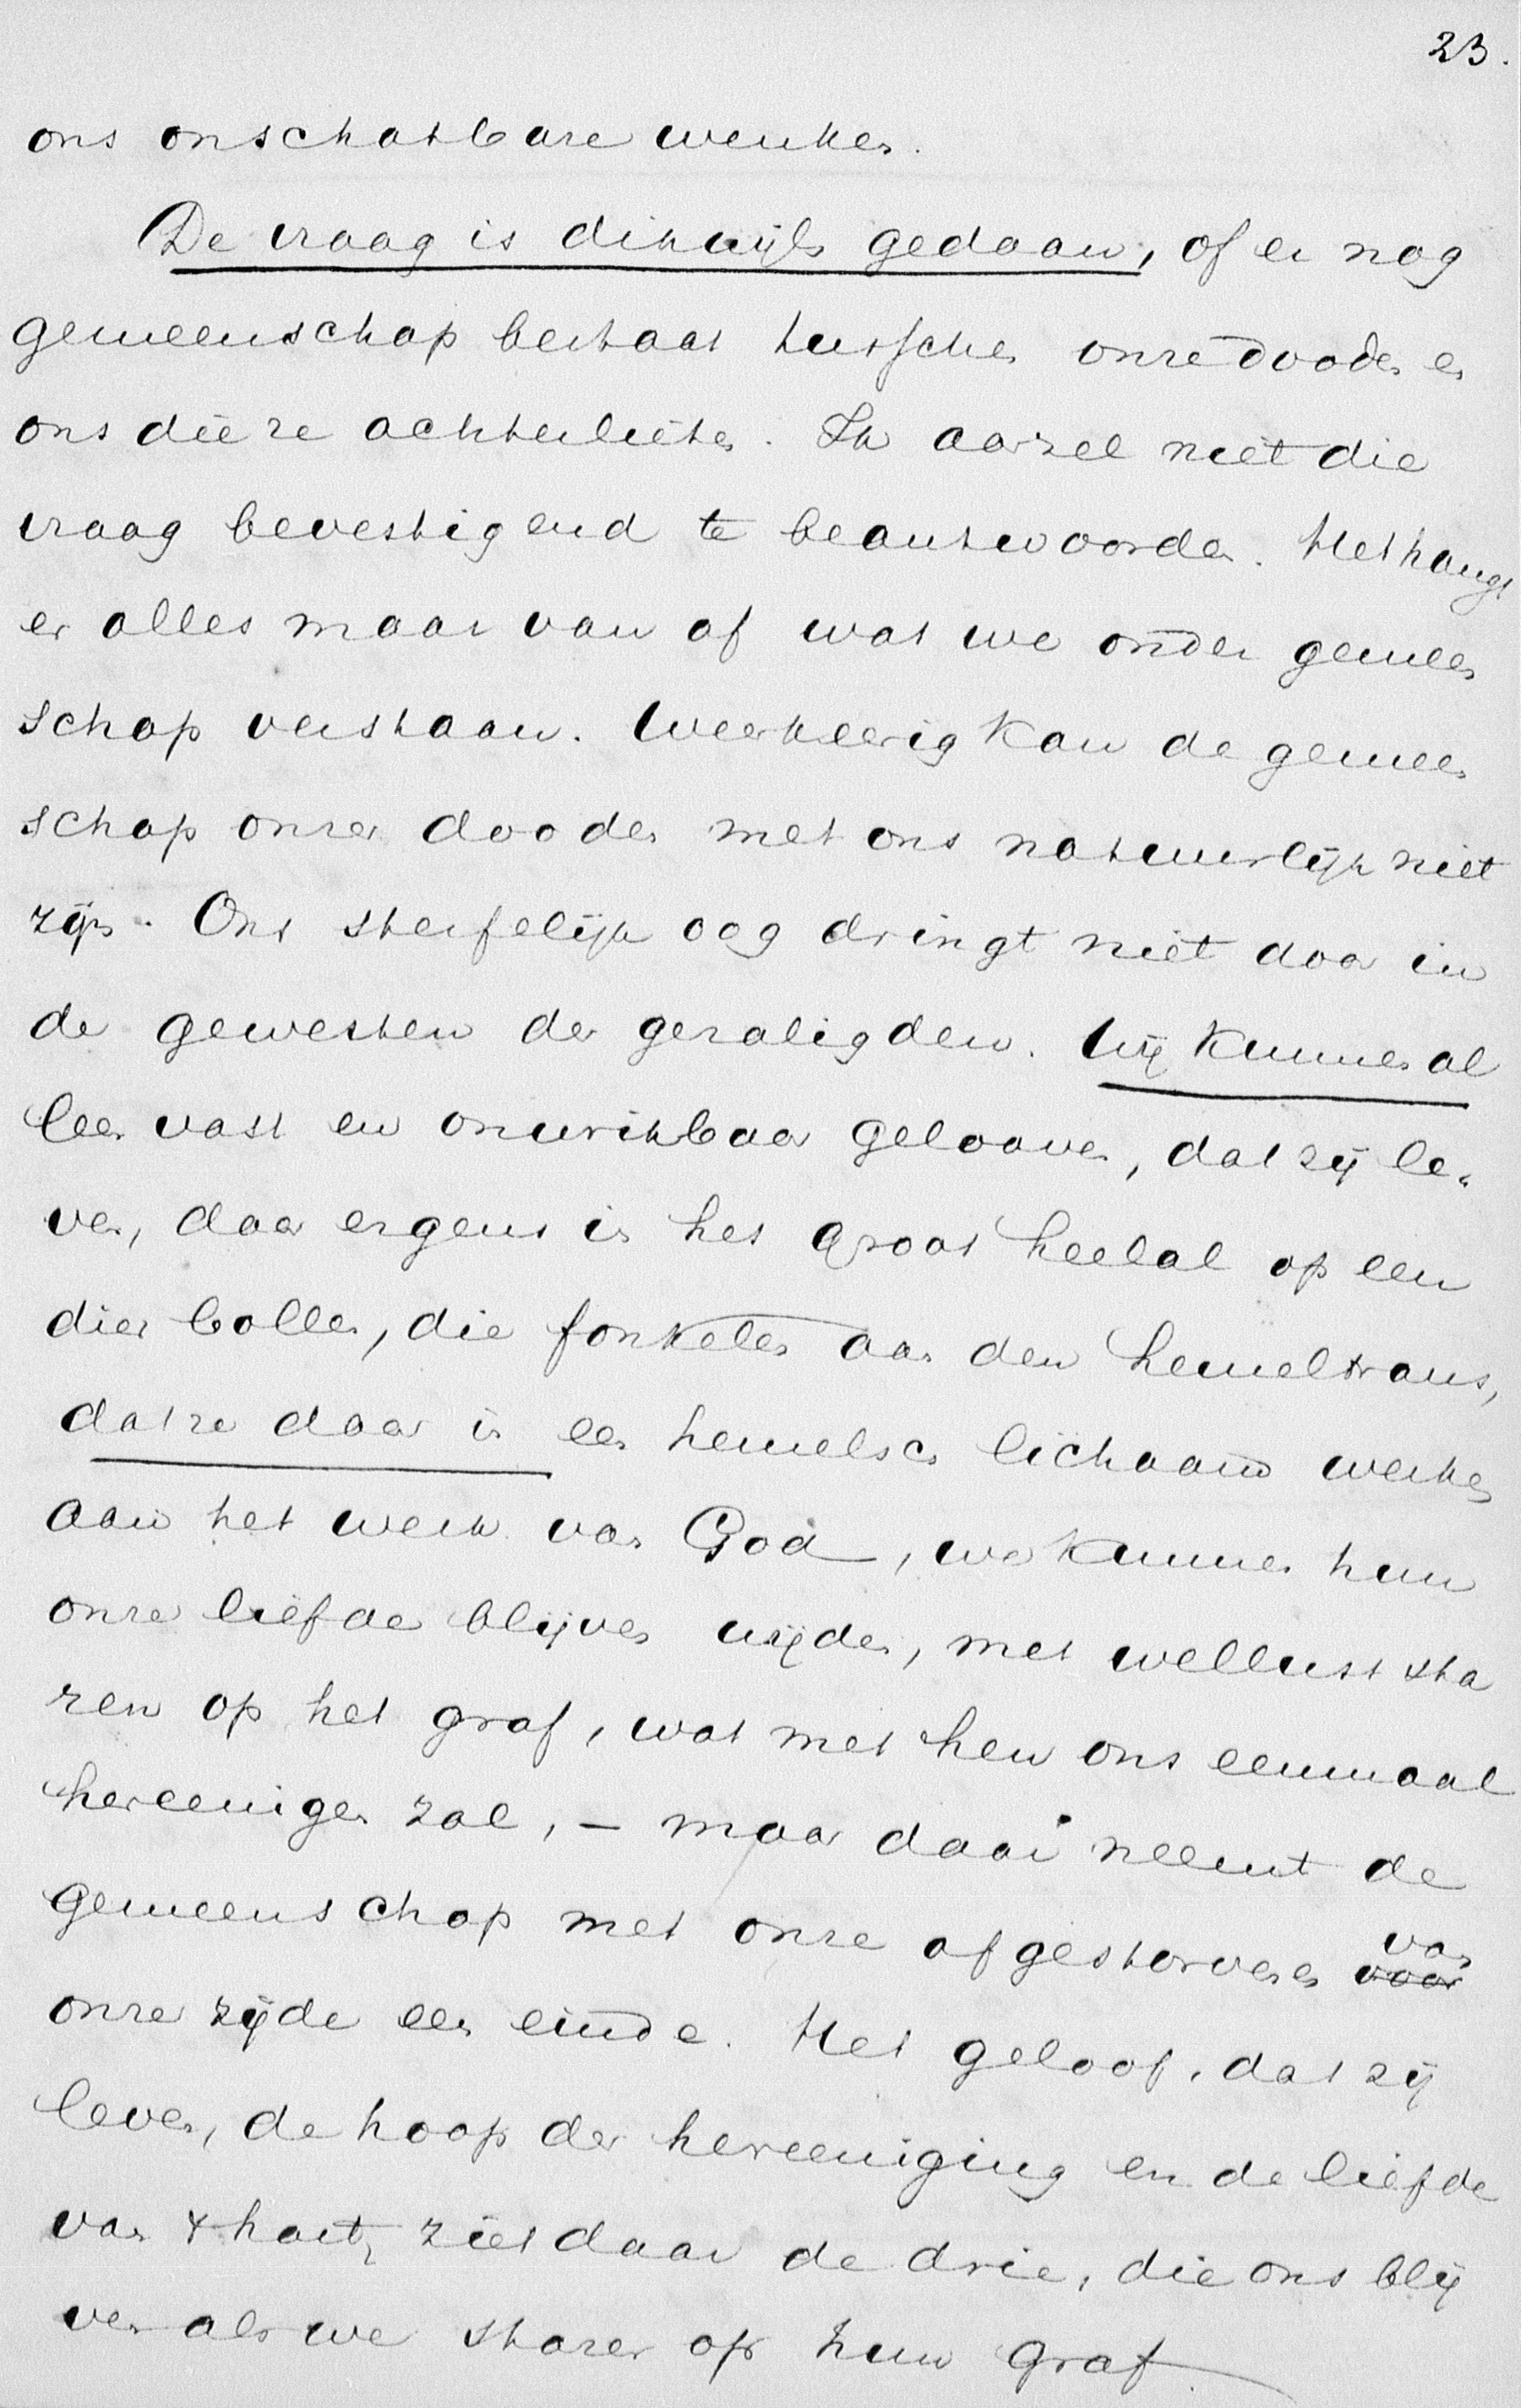 23.
ons onschatbare wenken.
De vraag is dikwijls gedaan, of er nog
gemeenschap bestaat tusschen onze dooden en
ons dieze achterlieten. Ik aarzel niet die
vraag bevestigend te beantwoorden. Het hangt
er alles maar van af wat we onder gemeen
schap verstaan. Weerkeerig kan de gemeen
schap onzer dooden met ons natuurlijk niet
zijn. Ons sterfelijk oog dringt niet door in
de gewesten der gezaligden. Wij kunnen al
leen vast en onwrikbaar gelooven, dat zij le-
ven, daar ergens in het groot heelal op een
dier bollen, die fonkelen aan den hemeltrans,
dat ze daar in een hemelsch lichaam werken
aan het werk van God, we kunnen hun
onze liefde blijven wijden, met wellust sta
ren op het graf, wat met hen ons eenmaal
hereenigen zal, – maar daar neemt de
gemeenschap met onze afgestorvenen voor van
onze zijde een einde. Het geloof, dat zij
leven, de hoop der hereeniging en de liefde
van 't hart, ziet daar de drie, die ons blij
ven als we staren op hun graf.